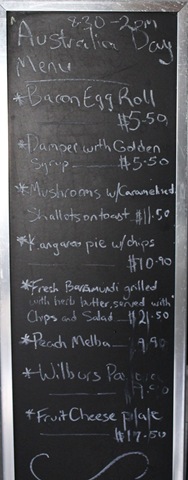 8:30-2pm
Australian Day
Menu
*Bacon Egg Roll
$5.50
*Damper with Golden
Syrup $5.50
*Mushrooms w/Caramelised
Shallots on toast $11.50
*Kangaroo pie w/chips
$10.90
*Fresh Barramundi grilled
with herb butter, served with
Chips and Salad $21.50
*Peach Melba 9.90
*Wilburs
9.90
*Fruit Cheese plate
$17.50